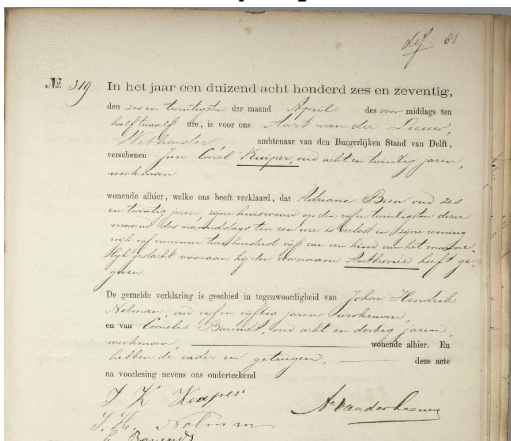 81
No. 319 In het jaar een duizend acht honderd zes en zeventig,
den zes en twintigsten der maand April des voor middags ten
half twaalf ure, is voor ons Aart van der Leeuw,
Wethouder ambtenaar van den Burgerlijken Stand van Delft,
verschenen Jan Kuiper, oud acht en twintig jaren,
werkman
wonende alhier, welke ons heeft verklaard, dat Adriana Bien oud zes
en twintig jaren, zijne huisvrouw op den vijfen twintigsten dezer
maand des namiddags ten een ure is verlost in zijne woning
wijk vijf nummer twee honderd vijf van een kind van het manne-
lijk geslacht waaraan hij den voornaam Anthonie heeft ge-
geven.
De gemelde verklaring is geschied in tegenwoordigheid van Johan Hendrik
Nolman, oud vijf en vijftig jaren, werkman,
en van Cornelis Barends, oud acht en dertig jaren,
werkman, wonende alhier. En
hebben de vader en getuigen, deze acte
na voorlezing nevens ons onderteekend
J K Kuiper
A. van der Leeuw
J. H. Nolman
C Barends